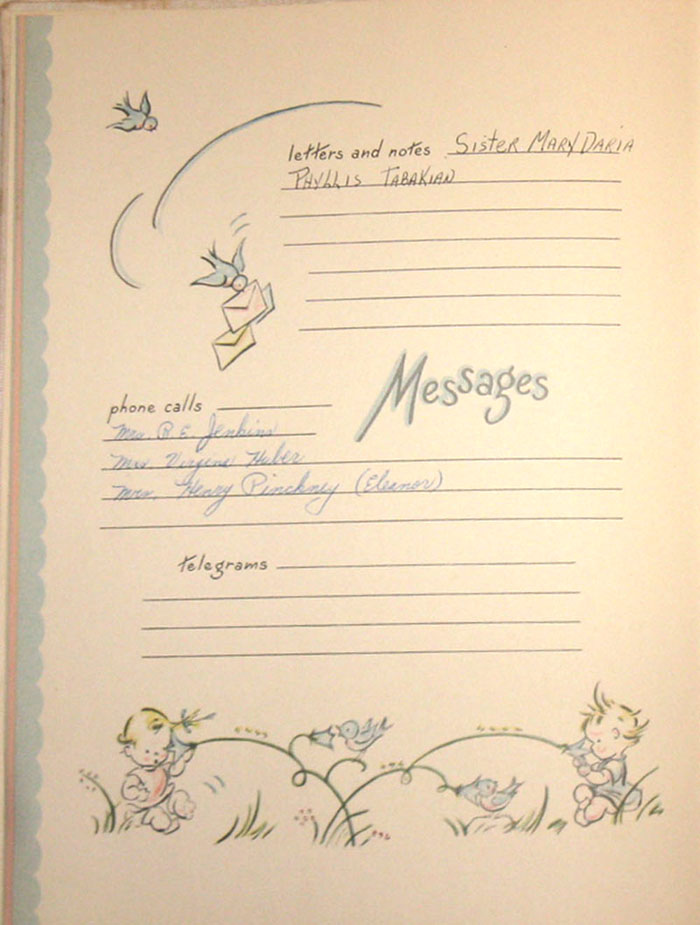 letters and notes Sister Mary Daria
Phyllis Tabakian
Messages
phone calls
Mrs. R. E. Jenkins
Mrs. Virgene Huber
Mrs. Henry Pinckney (Eleanor)
telegrams